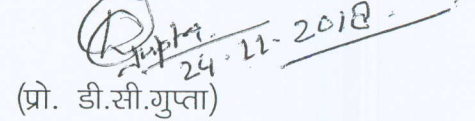 Gupta
24.11.2018
(प्रो. डी.सी.गुप्ता)